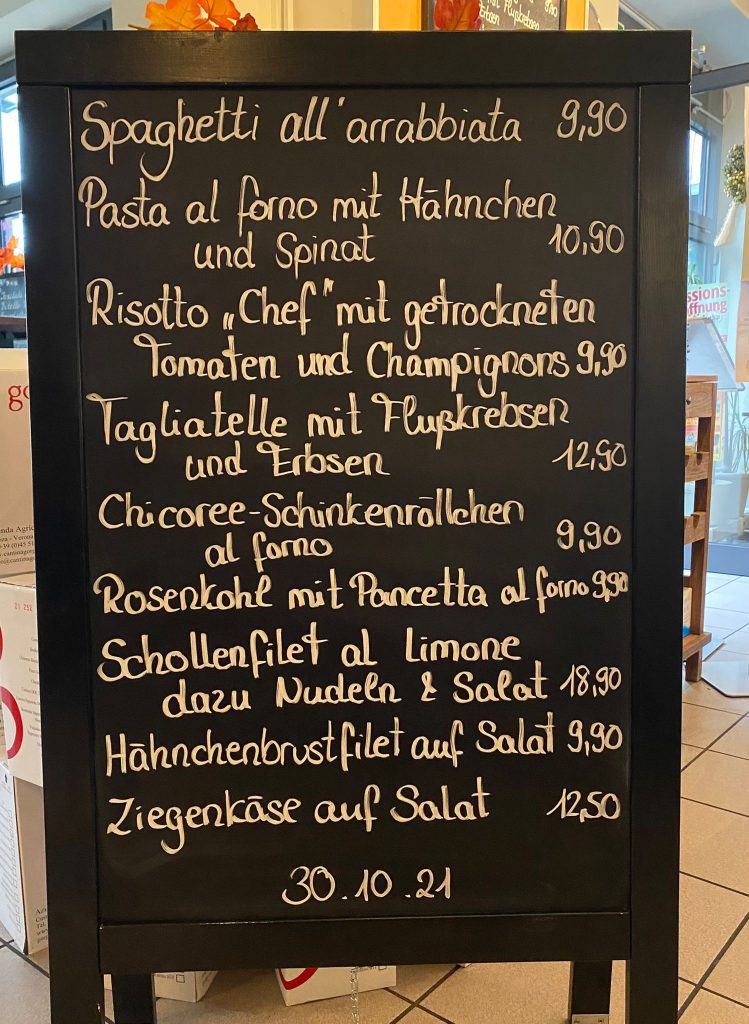 Spaghetti all'arrabbiata 9,90
Pasta al forno mit Hähnchen
und Spinat 10,90
Risotto „Chef" mit getrockneten
Tomaten und Champignons 9,90
Tagliatelle mit Flußkrebsen
und Erbsen 12,90
Chicoree-Schinkenröllchen
al forno 9,90
Rosenkohl mit Pancetta al forno 9,90
Schollenfilet al limone
dazu Nudeln & Salat 18,90
Hähnchenbrustfilet auf Salat 9,90
Ziegenkäse auf Salat 12,50
30.10.21